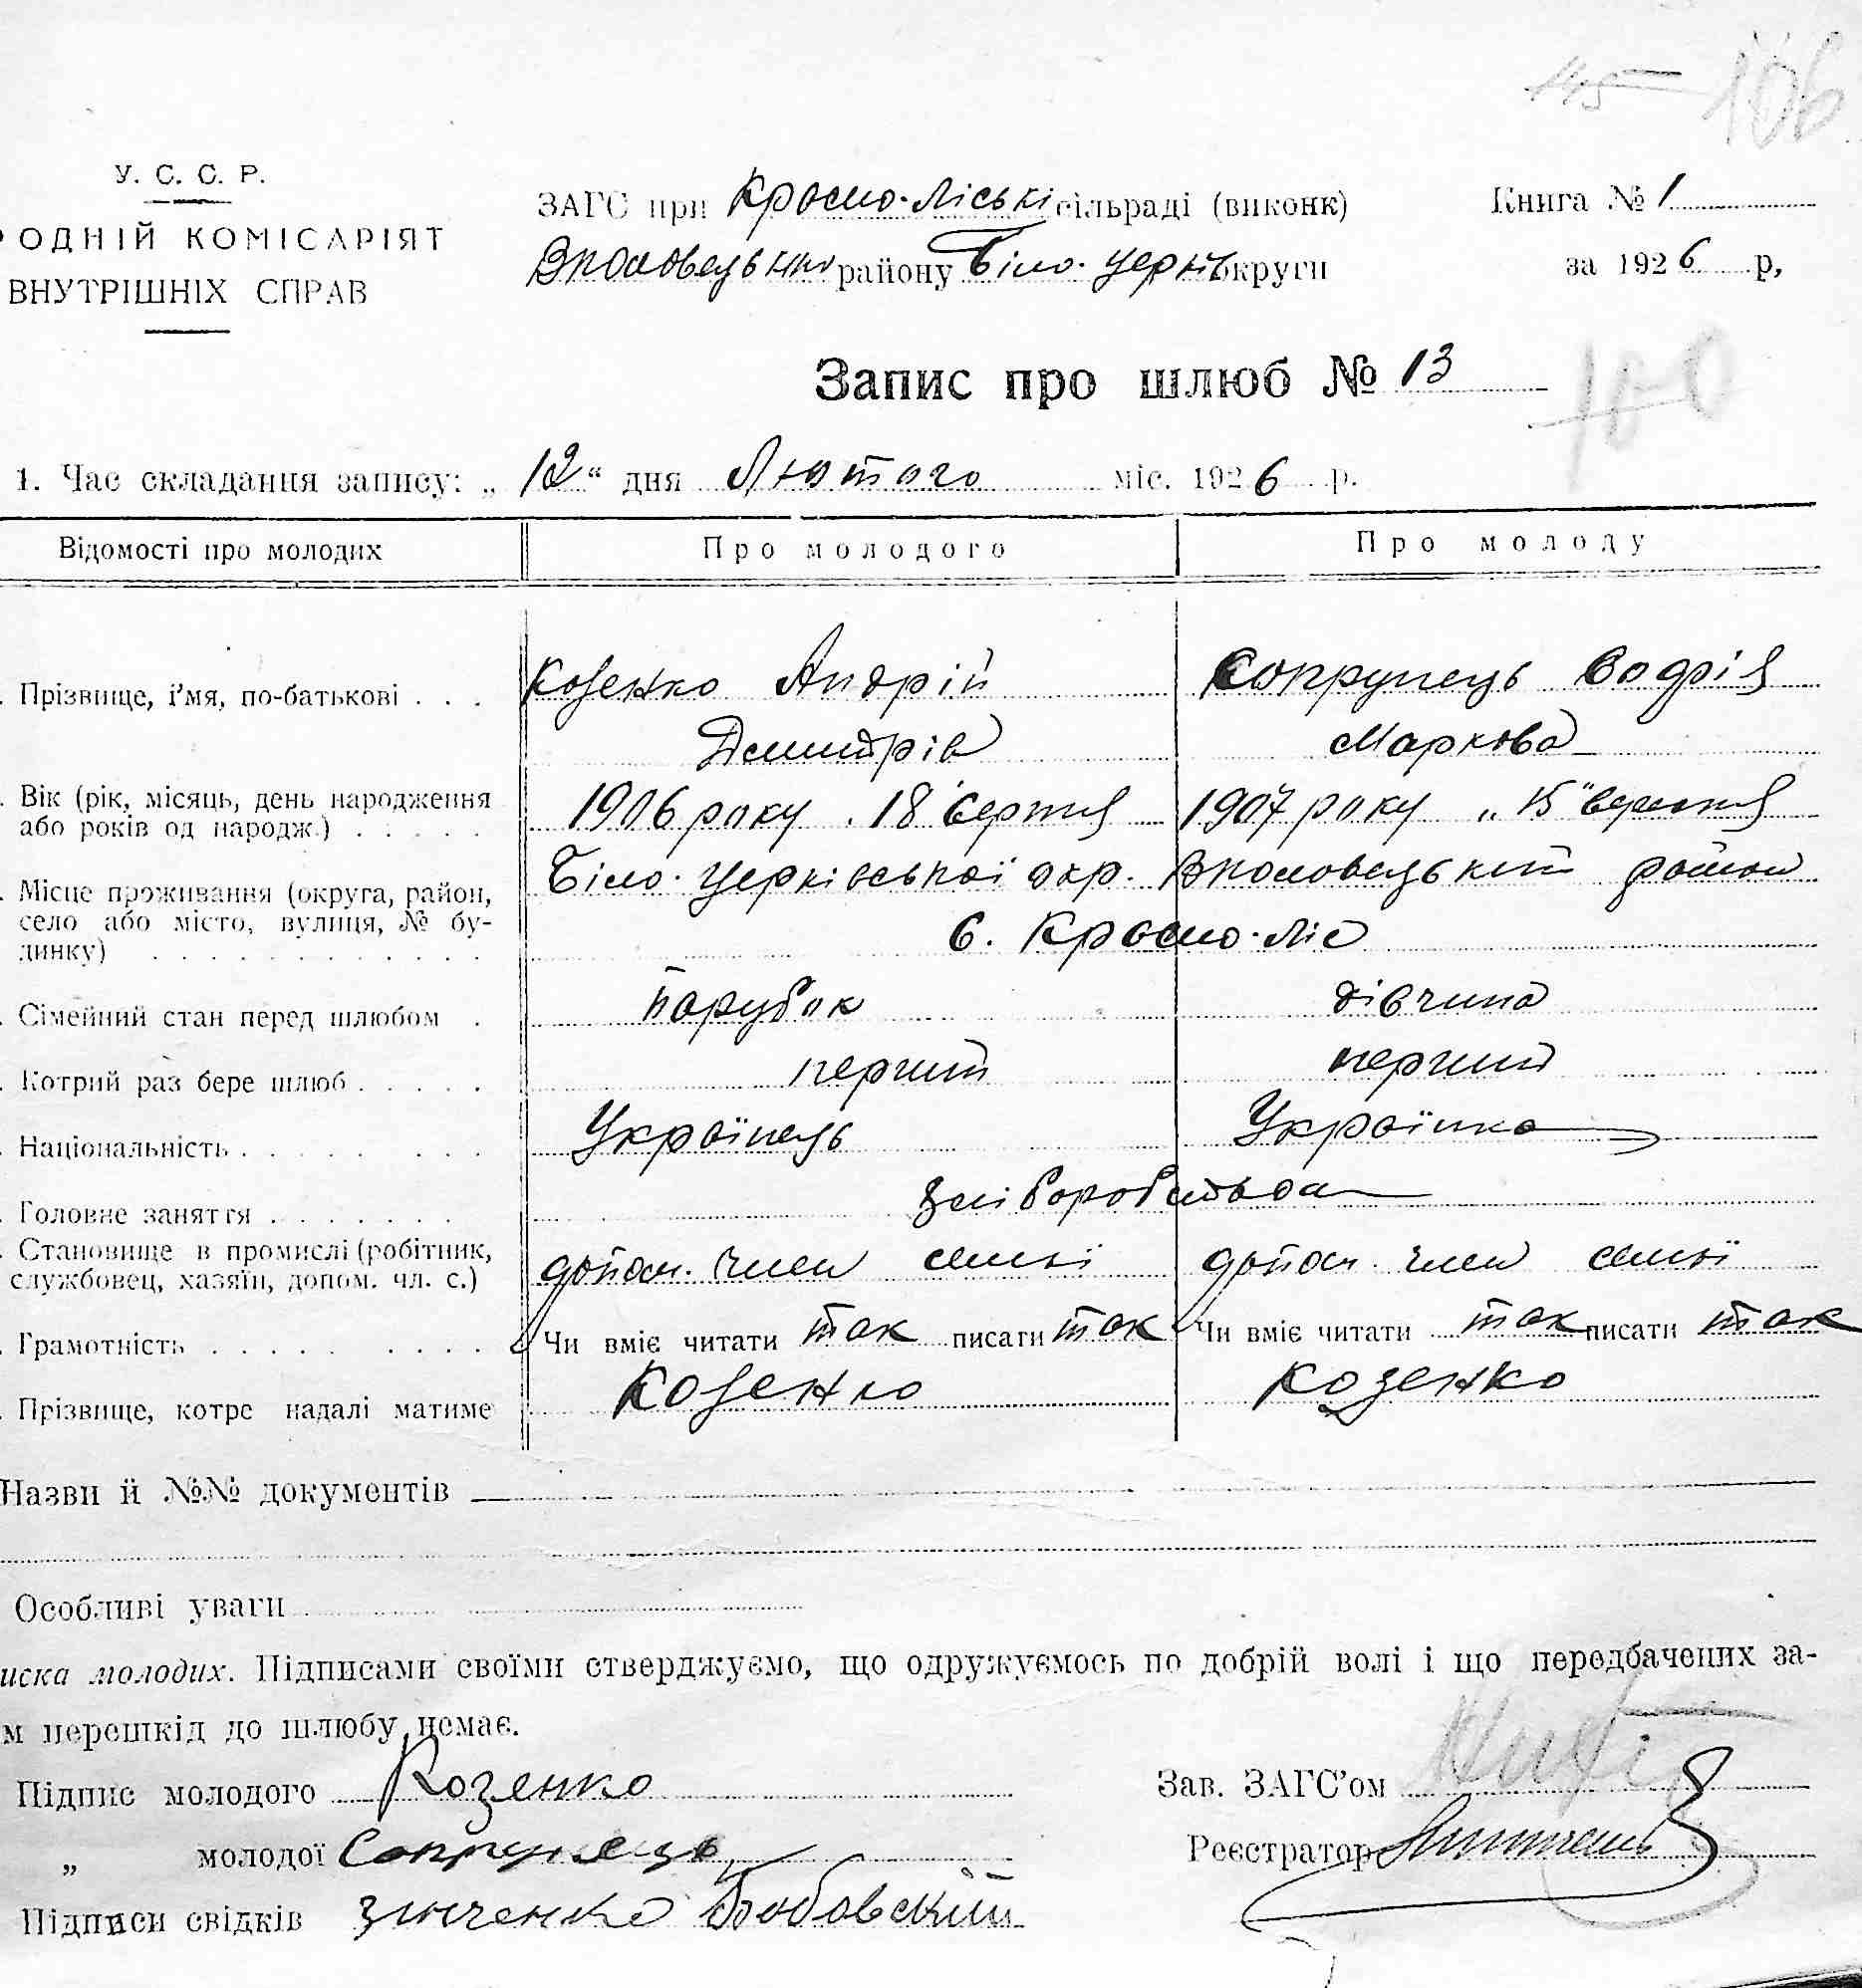 106
У. С. С. Р.
РОДНІЙ КОМІСАРІЯТ
ВНУТРІШНІХ СПРАВ
ЗАГС при Красно-Ліські сільраді (виконк)
Книга № 1
району Біло-Церків округи
за 1926 р,
Запис про шлюб № 13
100
1. Час складання запису: „12“ дня Лютого міс. 1926 р.
Відомості про молодих
Про молодого
Про молоду
Прізвище, і'мя, по-батькові . . .
Козенко Андрій
Сопрунець
Дмитрів
Маркова
Вік (рік, місяць, день народження
або років од народж.) . . . . .
1906 року 18 Серпня
1907 року „15" вересня
Місце проживання (округа, район,
село або місто, вулиця, № бу-
динку) . . . . . . . . . . . .
Біло-Церківської окр. район
с. Красно-Ліс
Сімейний стан перед шлюбом .
парубок
дівчина
Котрий раз бере шлюб . . . . .
перший
перший
Національність . . . . . . . .
Українець
Українка
Головне заняття . . . . . . .
хліборобство
Становище в промислі (робітник,
службовец, хазяїн, допом. чл. с.)
допом. член семьї
допом. член семьї
Грамотність . . . . . . . . .
Чи вміє читати так писати так
Чи вміє читати так писати так
Прізвище, котре надалі матиме
Козенко
Козенко
Назви й №№ документів
Особливі уваги
иска молодих. Підписами своїми стверджуємо, що одружуємось по добрій волі і що передбачених за-
м перешкід до шлюбу немає.
Підпис молодого Козенко
Зав. ЗАГС'ом
„ молодої Сопрунець
Реєстратор
Підписи свідків Зинченко